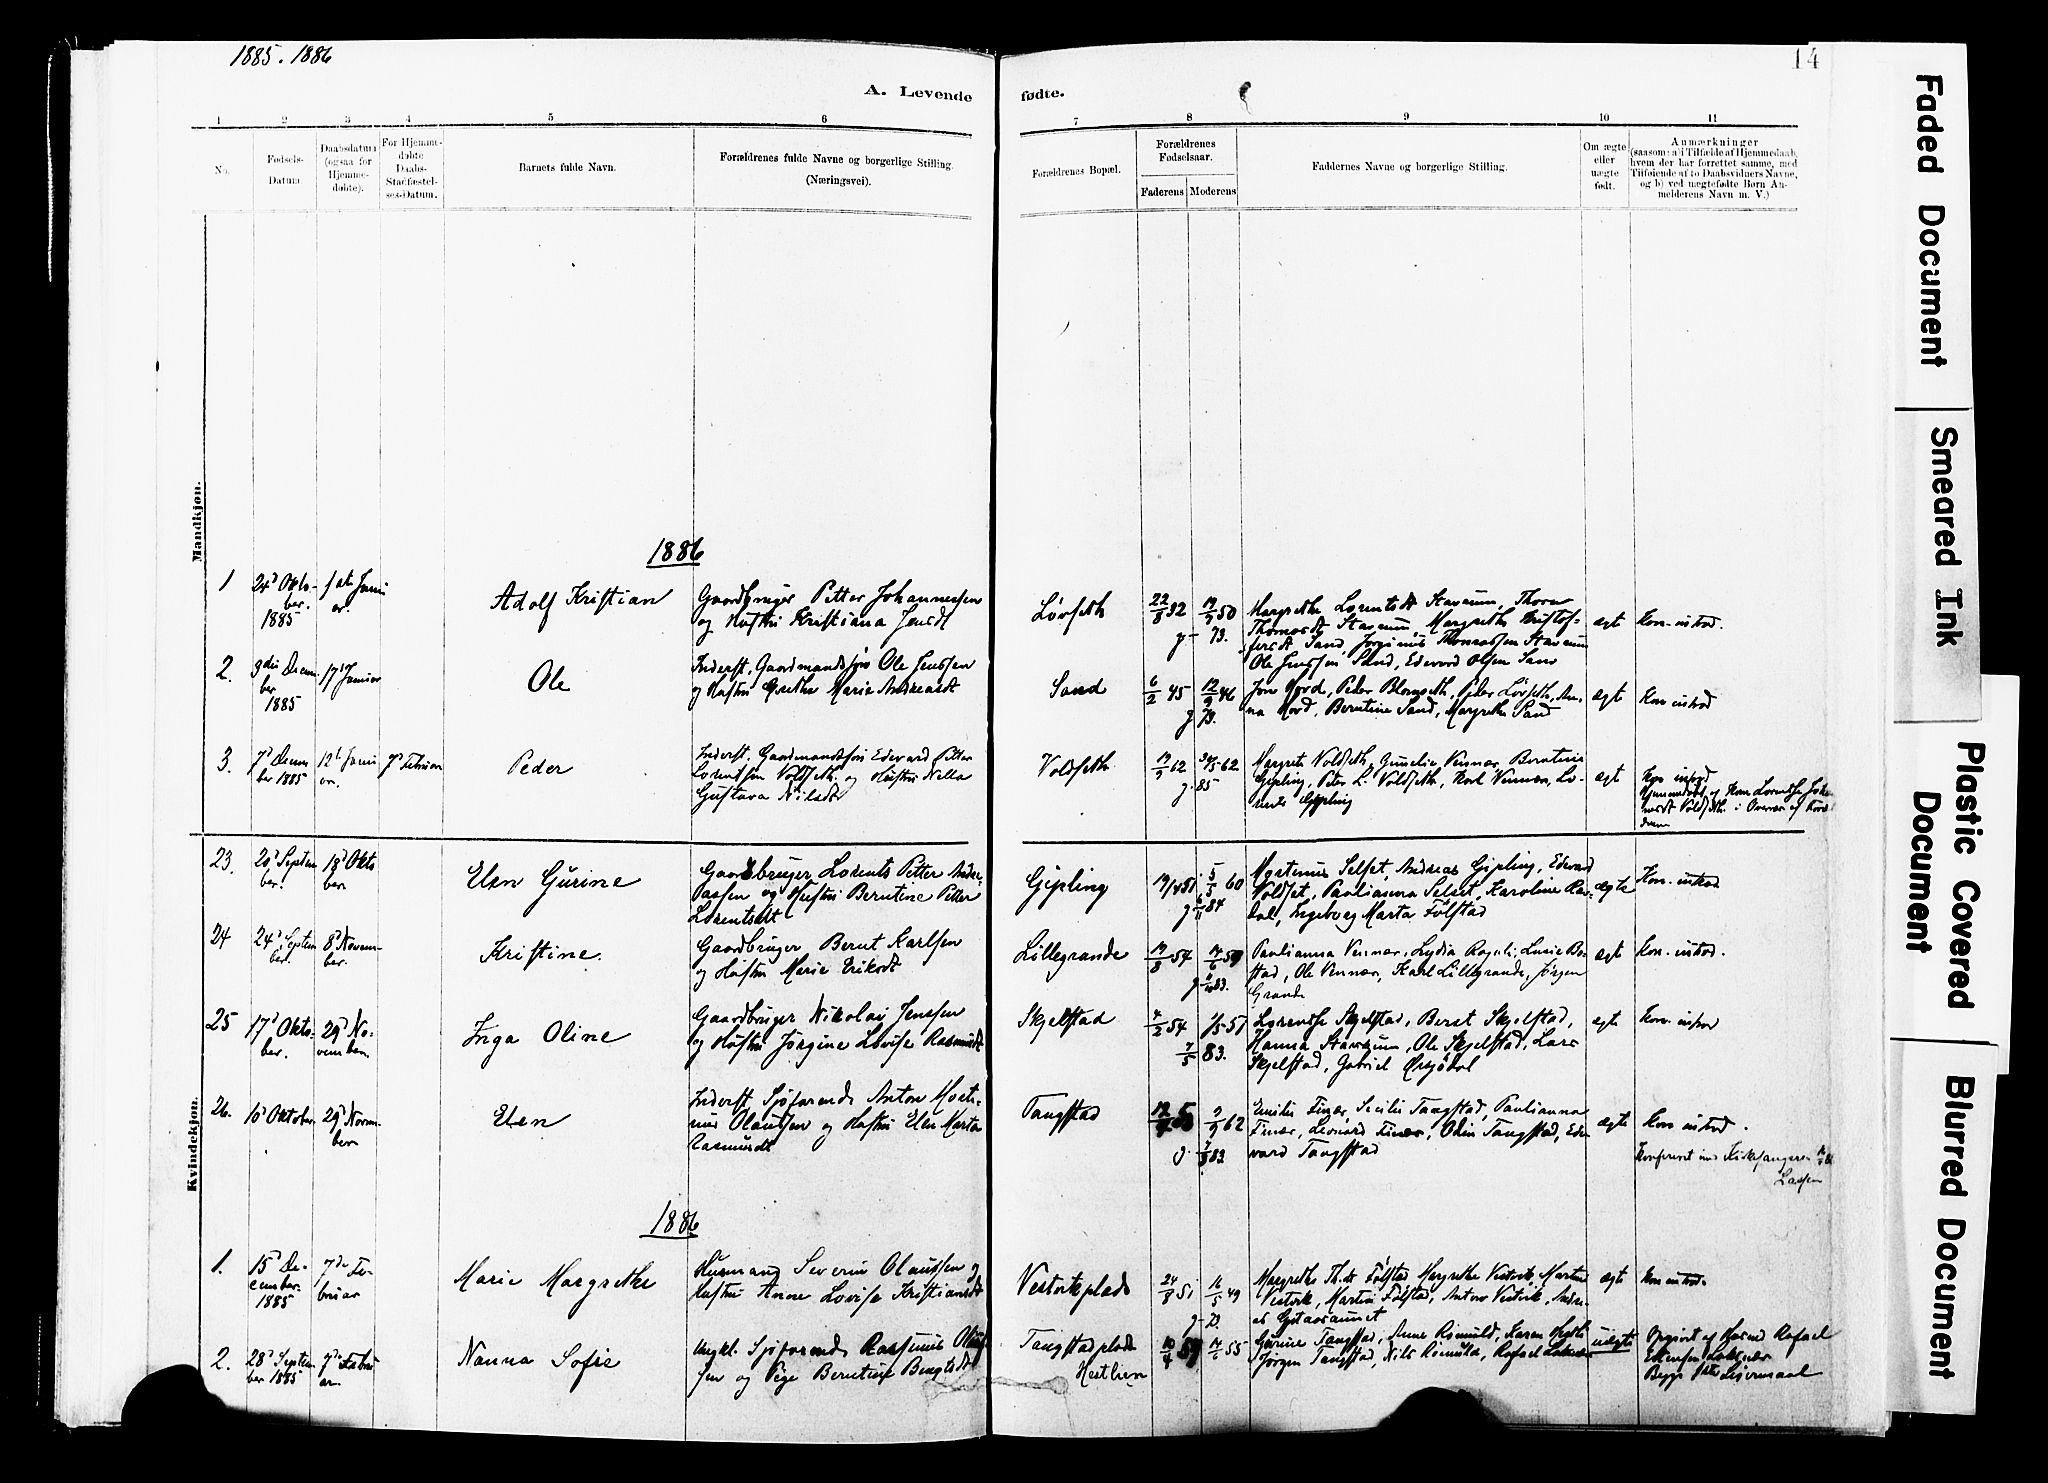 1885. 1886
14
A. Levende
fødte.
1 2 3 4 5 6 7 8 9 10 11
No.
Fødsels-
Datum.
Daabsdatum
(ogsaa for
Hjemme-
døbte).
For Hjemme-
døbte
Daabs-
Stadfæstel-
ses-Datum.
Barnets fulde Navn.
Forældrenes fulde Navne og borgerlige Stilling.
(Næringsvei).
Forældrenes Bopæl.
Forældrenes
Fødselsaar.
Faderens Moderens
Faddernes Navne og borgerlige Stilling.
Om ægte
eller
uægte
født.
Anmærkninger
(saasom: a) i Tilfælde af Hjemmedaab,
hvem der har forrettet samme, med
Tilføiende af to Daabsvidners Navne,
og b) ved uægtefødte Børn An-
melderens Navn m. V.)
Mandkjøn.
1886
1
24d Okto-
ber.
1885
Adolf Kristian
Gaardbruger Petter Johannessen
og Hustru Kristiana Jensdt
Løvseth
22/8 32
50
g 73.
Margrethe Lorentsdt Stavrum, Thora
Thomasdt Stavrum, Margrethe Kristof-
fersdt Sand, Jørginus Thomassen Stavrum
Ole Jenssen Sand, Edevard Olsen Sand
ægte
Kon. introd.
2.
3die Decem
ber
1885
17d Januar
Ole
Inderst, Gaardmandssøn Ole Jenssen
og Hustru Grethe Marie Andreasdt
Sand
6/2 45
12/9 46
g 73.
Jon Hord, Peder Blomseth, Peder Løvseth, An-
na Hord, Berntine Sand, Margrethe Sand
ægte
Kon introd
3.
7d Decem
ber 1885
12te Janu
ar.
7d Februar
Peder
Inderst, Gaardmandssøn Edevard Petter
Lorentsen Voldseth og Hustru Nella
Gustava Nilsdt
Voldseth
62
62
g. 85
Margrete Voldseth, Gunelie Vennær, Berntine
Gipling, Peter L. Voldseth, Karl Vennær, Lo-
rents Gipling
ægte
Kon introd
Voldseth i Overvær af
Kvindekjøn.
23.
20d Septem
ber.
18d Okto
ber
Elen Gurine
Gaardbruger Lorents Petter Andre-
assen og Hustru Berntine Petter
Lorentsdt
Gipling
51
5/5 60
g 84
Mortinus Selset, Andreas Gipling, Edevard
Voldset, Paulianna Selset, Karoline Ra-
dal, Ingeborg Marta Følstad
ægte
Kon. introd
24
24d Septem
ber.
8d Novem-
ber.
Kristine.
Gaardbruger Bernt Karlsen
og Hustru Marie Eriksdt
Lillegrande
19/8 54
59
g 83.
Paulianna Vennær, Lydia
stad, Ole Vennær, Karl Lillegrande, Jørgen
Grande
ægt
Kon. introd.
25
17d Okto-
ber.
29d No-
vember
Inga Oline
Gaardbruger Nikolai Jenssen
og Hustru Jørgine Lovise Rasmusdt
Skjelstad
4/2 54
1/5 51
7/5 83.
Lorentse Skjelstad, Beret Skjelstad,
Hanna Stavrum, Ole Skjelstad, Lars
Skjelstad, Gabriel
ægt
Kon. introd
26.
10d Oktober
29d Novem-
ber
Elen
Inderst Sjøfarende Anton Morti-
nus Olaussen og Hustru Elen Marta
Rasmusdt
Tangstad
62
83
Emilie Finær, Secilie Tangstad, Paulianna
Finær, Leonard Finær, Odin Tangstad, Ede-
vard Tangstad
ægte
Kon introd.
Konfereret med Kirkesangeren
1886
1.
15d De-
cember.
1885
7de Fe-
bruar
Marie Margrethe
Husmand Severin Olaussen og
Hustru Anne Lovise Kristiansdt
Vestvikplads
24/8 51
16/5 49
g 73.
Margrethe Th.dt Følstad, Margrethe Vestvik, Martin
Vestvik, Martin Følstad, Anton Vestvik, Andre-
as
ægt
Kon introd.
2.
28d Septem
ber 1885
7de Febru
ar
Nanna Sofie
Ungkl. Sjøfarende Rasmus Olaus-
sen og Pige Berntine Bengtsdt
Tangstadplads
Hestlien
55
Gurine Tangstad, Anne Romuld, Karen
Jørgen Tangstad, Nils Romuld, Rafael
uægte
Opgivet af Rafael
Begges 1ste Leiermaal
Faded Document
Smeared Ink
Plastic Covered
Document
Blurred Document